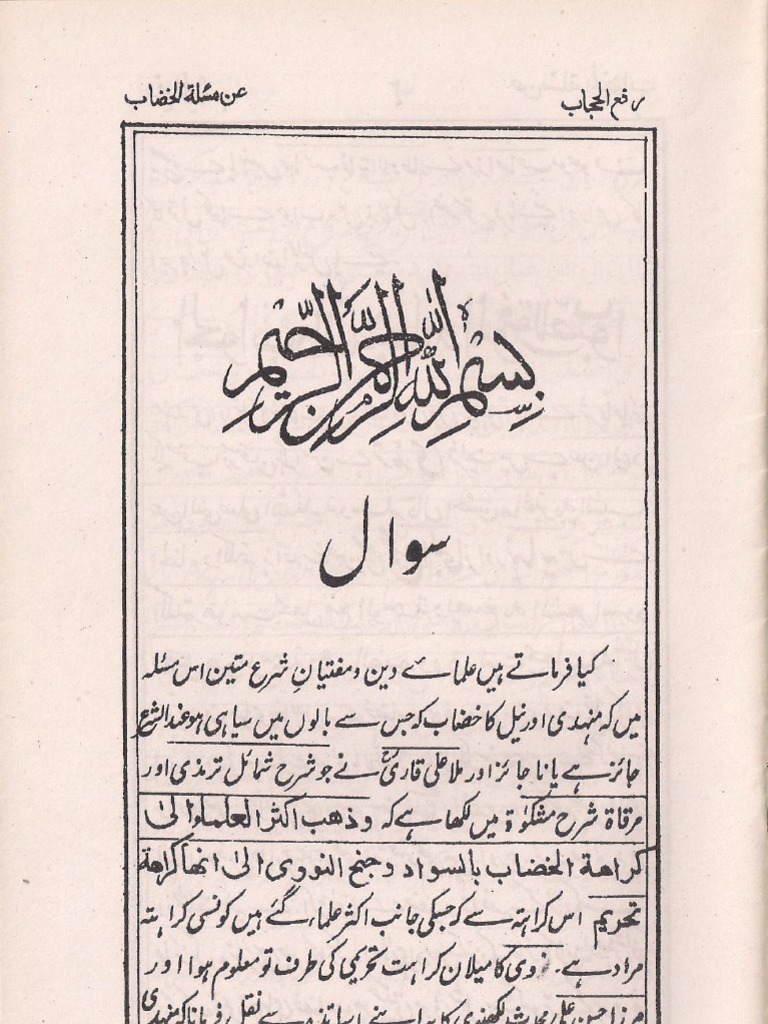 رفع الحجاب
عن مسئلة الخضاب
بسم الله الرحمن الرحیم
سوال
کیا فرماتے ہیں علمائے دین و مفتیانِ شرع متین اس مسئلہ
میں کہ منہدی اور نیل کا خضاب کہ جس سے بالوں میں سیاہی ہو عند الشرع
جائز ہے یا ناجائز اور ملا علی قاریؒ نے جو شرح شمائل ترمذی اور
مرقاۃ شرح مشکوٰۃ میں لکھا ہے کہ وذهب اکثر العلماء الیٰ
کراهة الخضاب بالسواد وجنح النووی الیٰ انها کراهة
تحریم اس کراہتہ سے کہ جسکی جانب اکثر علماء گئے ہیں کونسی کراہتہ
مراد ہے۔ نووی کا میلان کراہت تحریمی کی طرف تو معلوم ہوا اور
مرزا حسن علی محدث لکھنوی کا اپنے اساتذہ سے نقل فرمانا کہ منہدی